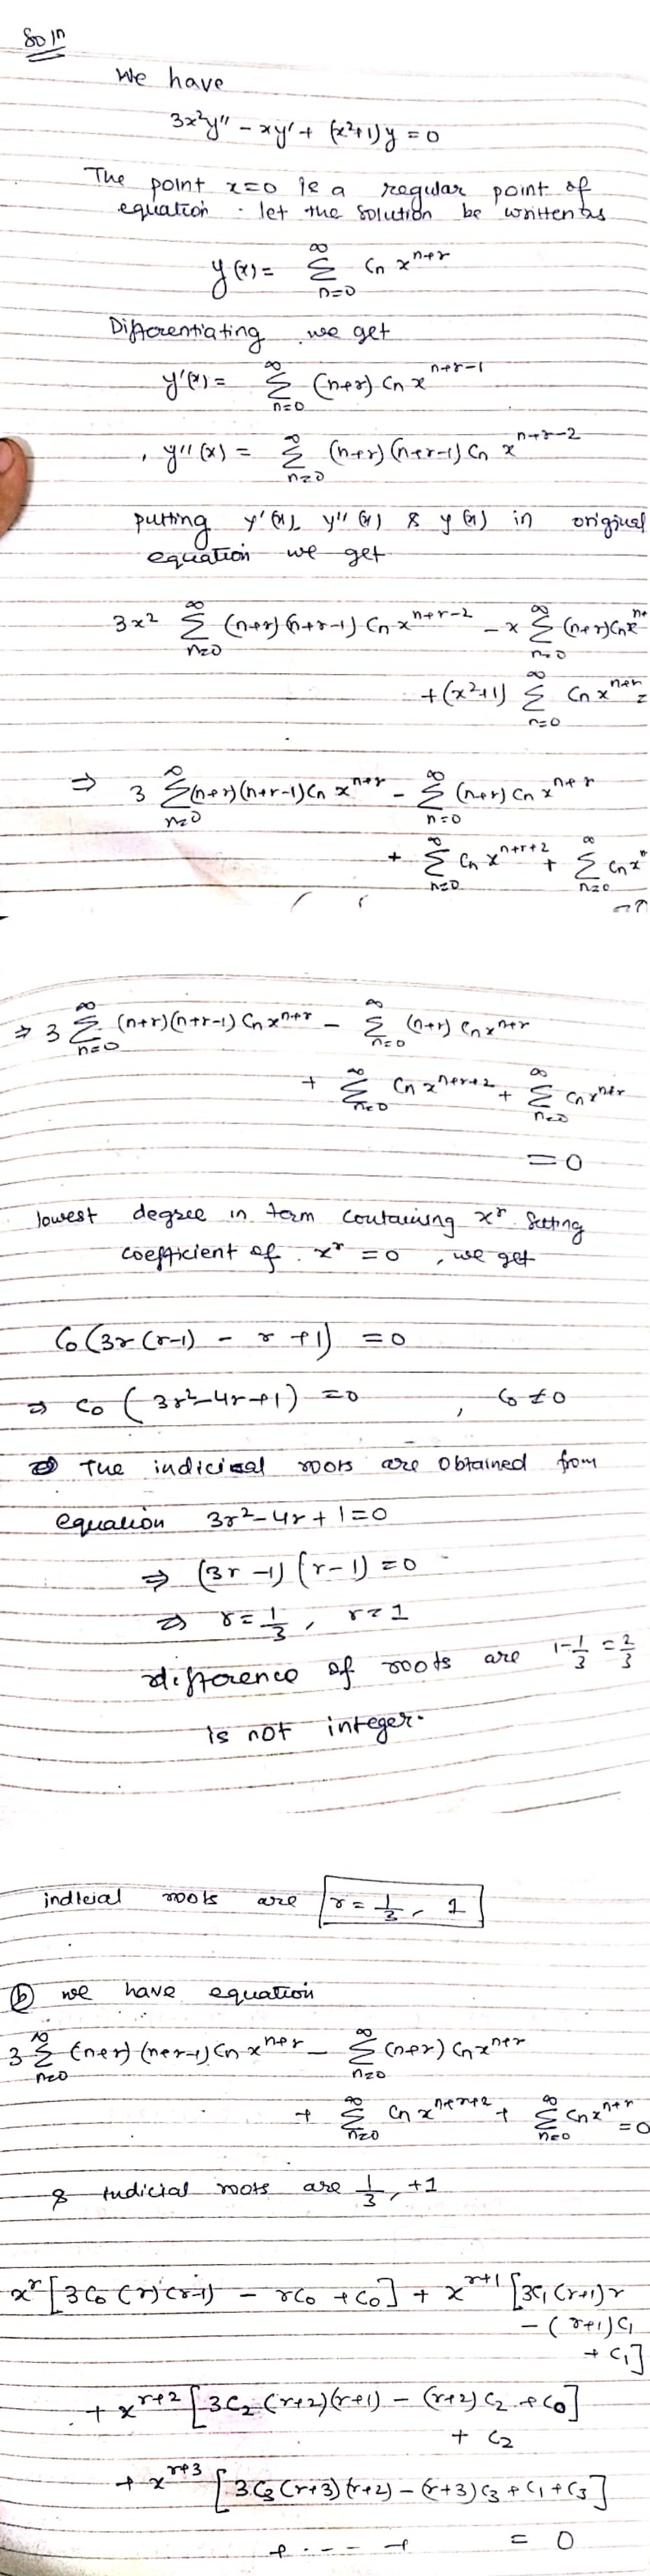 Soln
We have
3x²y'' - xy' + (x²+1)y = 0
The point x=0 is a regular point of
equation . let the solution be written as
y(x) = ∞ Σ n=0 Cn x^{n+r}
Differentiating we get
y'(x) = ∞ Σ n=0 (n+r) Cn x^{n+r-1}
, y''(x) = ∞ Σ n=0 (n+r)(n+r-1) Cn x^{n+r-2}
putting y'(x), y''(x) & y(x) in original
equation we get
3x² ∞ Σ n=0 (n+r)(n+r-1) Cn x^{n+r-2} - x ∞ Σ n=0 (n+r) Cn x^{n+
+ (x²+1) ∞ Σ n=0 Cn x^{n+r} =
⇒ 3 ∞ Σ n=0 (n+r)(n+r-1) Cn x^{n+r} - ∞ Σ n=0 (n+r) Cn x^{n+r}
+ ∞ Σ n=0 Cn x^{n+r+2} + ∞ Σ n=0 Cn x^{n
⇒ 3 ∞ Σ n=0 (n+r)(n+r-1) Cn x^{n+r} - ∞ Σ n=0 (n+r) Cn x^{n+r}
+ ∞ Σ n=0 Cn x^{n+r+2} + ∞ Σ n=0 Cn x^{n+r}
= 0
lowest degree in term containing x^r. Setting
coefficient of x^r = 0 , we get
C0 (3r(r-1) - r + 1) = 0
⇒ C0 (3r²-4r+1) = 0 , C0 ≠ 0
The indicial roots are obtained from
equation 3r²-4r+1=0
⇒ (3r-1)(r-1) = 0
⇒ r = 1/3 , r = 1
difference of roots are 1-1/3 = 2/3
is not integer.
indicial roots are r = 1/3, 1
(b) we have equation
3 ∞ Σ n=0 (n+r)(n+r-1) Cn x^{n+r} - ∞ Σ n=0 (n+r) Cn x^{n+r}
+ ∞ Σ n=0 Cn x^{n+r+2} + ∞ Σ n=0 Cn x^{n+r} = 0
& Indicial roots are 1/3, +1
x^r [3C0 (r)(r-1) - rC0 + C0] + x^{r+1} [3C1 (r+1)r
- (r+1)C1
+ C1]
+ x^{r+2} [3C2 (r+2)(r+1) - (r+2)C2 + C0]
+ C2
+ x^{r+3} [3C3 (r+3)(r+2) - (r+3)C3 + C1 + C3]
+ - - - + = 0